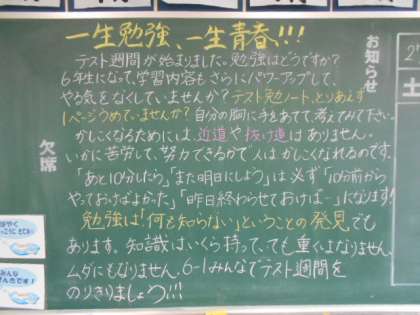 一生勉強、一生青春!!!
テスト週間が始まりました。勉強はどうですか？
6年生になって、学習内容もさらにパワーアップして、
やる気をなくしていませんか？テスト勉ノート、とりあえず
1ページうめていませんか？自分の胸に手をあてて、考えてみて下さい。
かしこくなるためには、近道や抜け道はありません。
いかに苦労して、努力できるかで人はかしこくなれるのです。
「あと10分したら」「また明日にしよう」は必ず「10分前から
やっておけばよかった」「昨日終わらせておけばー」になります!
勉強は「何も知らない」ということの発見でも
あります。知識はいくら持ってても重くはなりません。
ムダにもなりません。6-1みんなでテスト週間を
のりきりましょう!!!
お知らせ
土
欠席
はやく
みんな